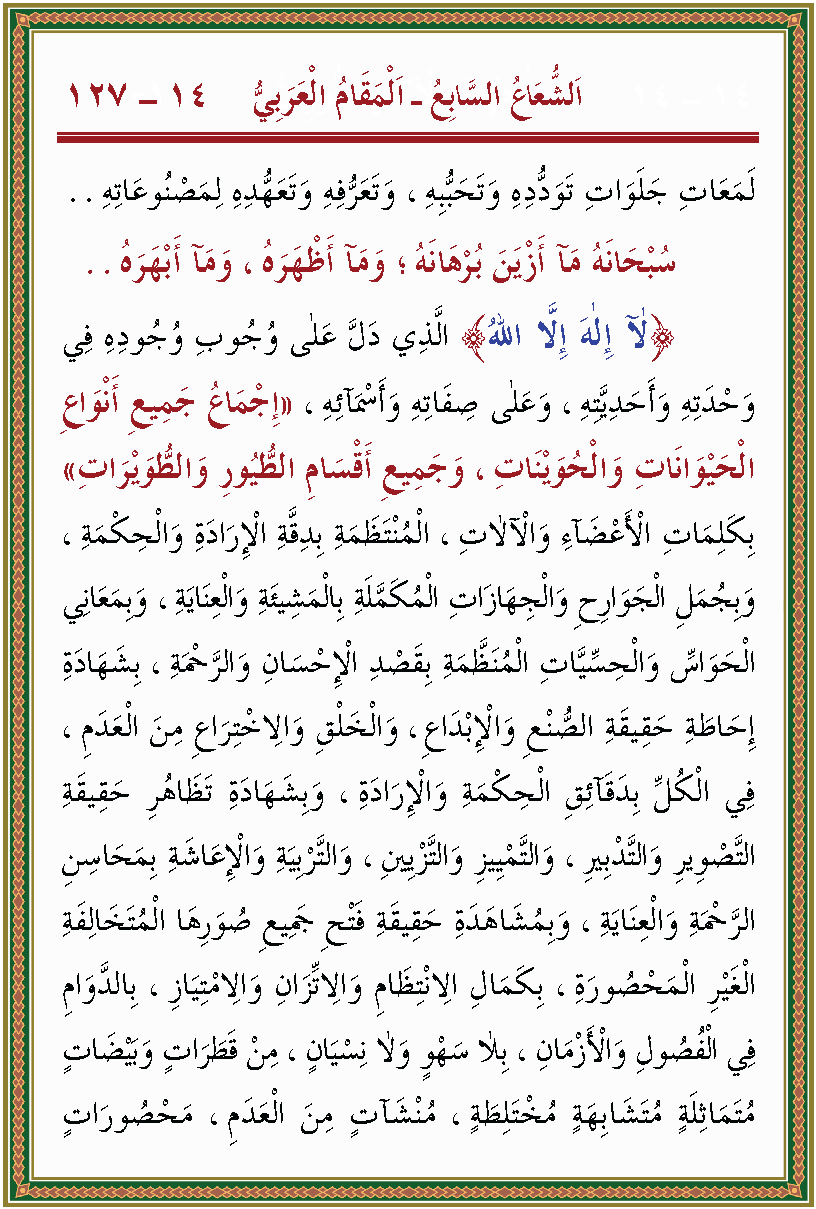 اَلشُّعَاعُ السَّابِعُ ـ اَلْمَقَامُ الْعَرَبِيُّ ١٤ – ١٢٧
لَمَعَاتِ جَلَوَاتِ تَوَدُّدِهِ وَتَحَبُّبِهِ ، وَتَعَرُّفِهِ وَتَعَهُّدِهِ لِمَصْنُوعَاتِهِ . .
سُبْحَانَهُ مَآ أَزْيَنَ بُرْهَانَهُ ؛ وَمَآ أَظْهَرَهُ ، وَمَآ أَبْهَرَهُ . .
﴿لَآ إِلٰهَ إِلَّا اللهُ﴾ الَّذِي دَلَّ عَلٰى وُجُوبِ وُجُودِهِ فِي
وَحْدَتِهِ وَأَحَدِيَّتِهِ ، وَعَلٰى صِفَاتِهِ وَأَسْمَآئِهِ ، «إِجْمَاعُ جَمِيعِ أَنْوَاعِ
الْحَيْوَانَاتِ وَالْحُوَيْنَاتِ ، وَجَمِيعِ أَقْسَامِ الطُّيُورِ وَالطُّوَيْرَاتِ»
بِكَلِمَاتِ الْأَعْضَآءِ وَالْآلَاتِ ، الْمُنْتَظَمَةِ بِدِقَّةِ الْإِرَادَةِ وَالْحِكْمَةِ ،
وَبِجُمَلِ الْجَوَارِحِ وَالْجِهَازَاتِ الْمُكَمَّلَةِ بِالْمَشِيئَةِ وَالْعِنَايَةِ ، وَبِمَعَانِي
الْحَوَاسِّ وَالْحِسِّيَّاتِ الْمُنَظَّمَةِ بِقَصْدِ الْإِحْسَانِ وَالرَّحْمَةِ ، بِشَهَادَةِ
إِحَاطَةِ حَقِيقَةِ الصُّنْعِ وَالْإِبْدَاعِ ، وَالْخَلْقِ وَالِاخْتِرَاعِ مِنَ الْعَدَمِ ،
فِي الْكُلِّ بِدَقَآئِقِ الْحِكْمَةِ وَالْإِرَادَةِ ، وَبِشَهَادَةِ تَظَاهُرِ حَقِيقَةِ
التَّصْوِيرِ وَالتَّدْبِيرِ ، وَالتَّمْيِيزِ وَالتَّزْيِينِ ، وَالتَّرْبِيَةِ وَالْإِعَاشَةِ بِمَحَاسِنِ
الرَّحْمَةِ وَالْعِنَايَةِ ، وَبِمُشَاهَدَةِ حَقِيقَةِ فَتْحِ جَمِيعِ صُوَرِهَا الْمُتَخَالِفَةِ
الْغَيْرِ الْمَحْصُورَةِ ، بِكَمَالِ الِانْتِظَامِ وَالِاتِّزَانِ وَالِامْتِيَازِ ، بِالدَّوَامِ
فِي الْفُصُولِ وَالْأَزْمَانِ ، بِلَا سَهْوٍ وَلَا نِسْيَانٍ ، مِنْ قَطَرَاتٍ وَبَيْضَاتٍ
مُتَمَاثِلَةٍ مُتَشَابِهَةٍ مُخْتَلِطَةٍ ، مُنْشَآتٍ مِنَ الْعَدَمِ ، مَحْصُورَاتٍ